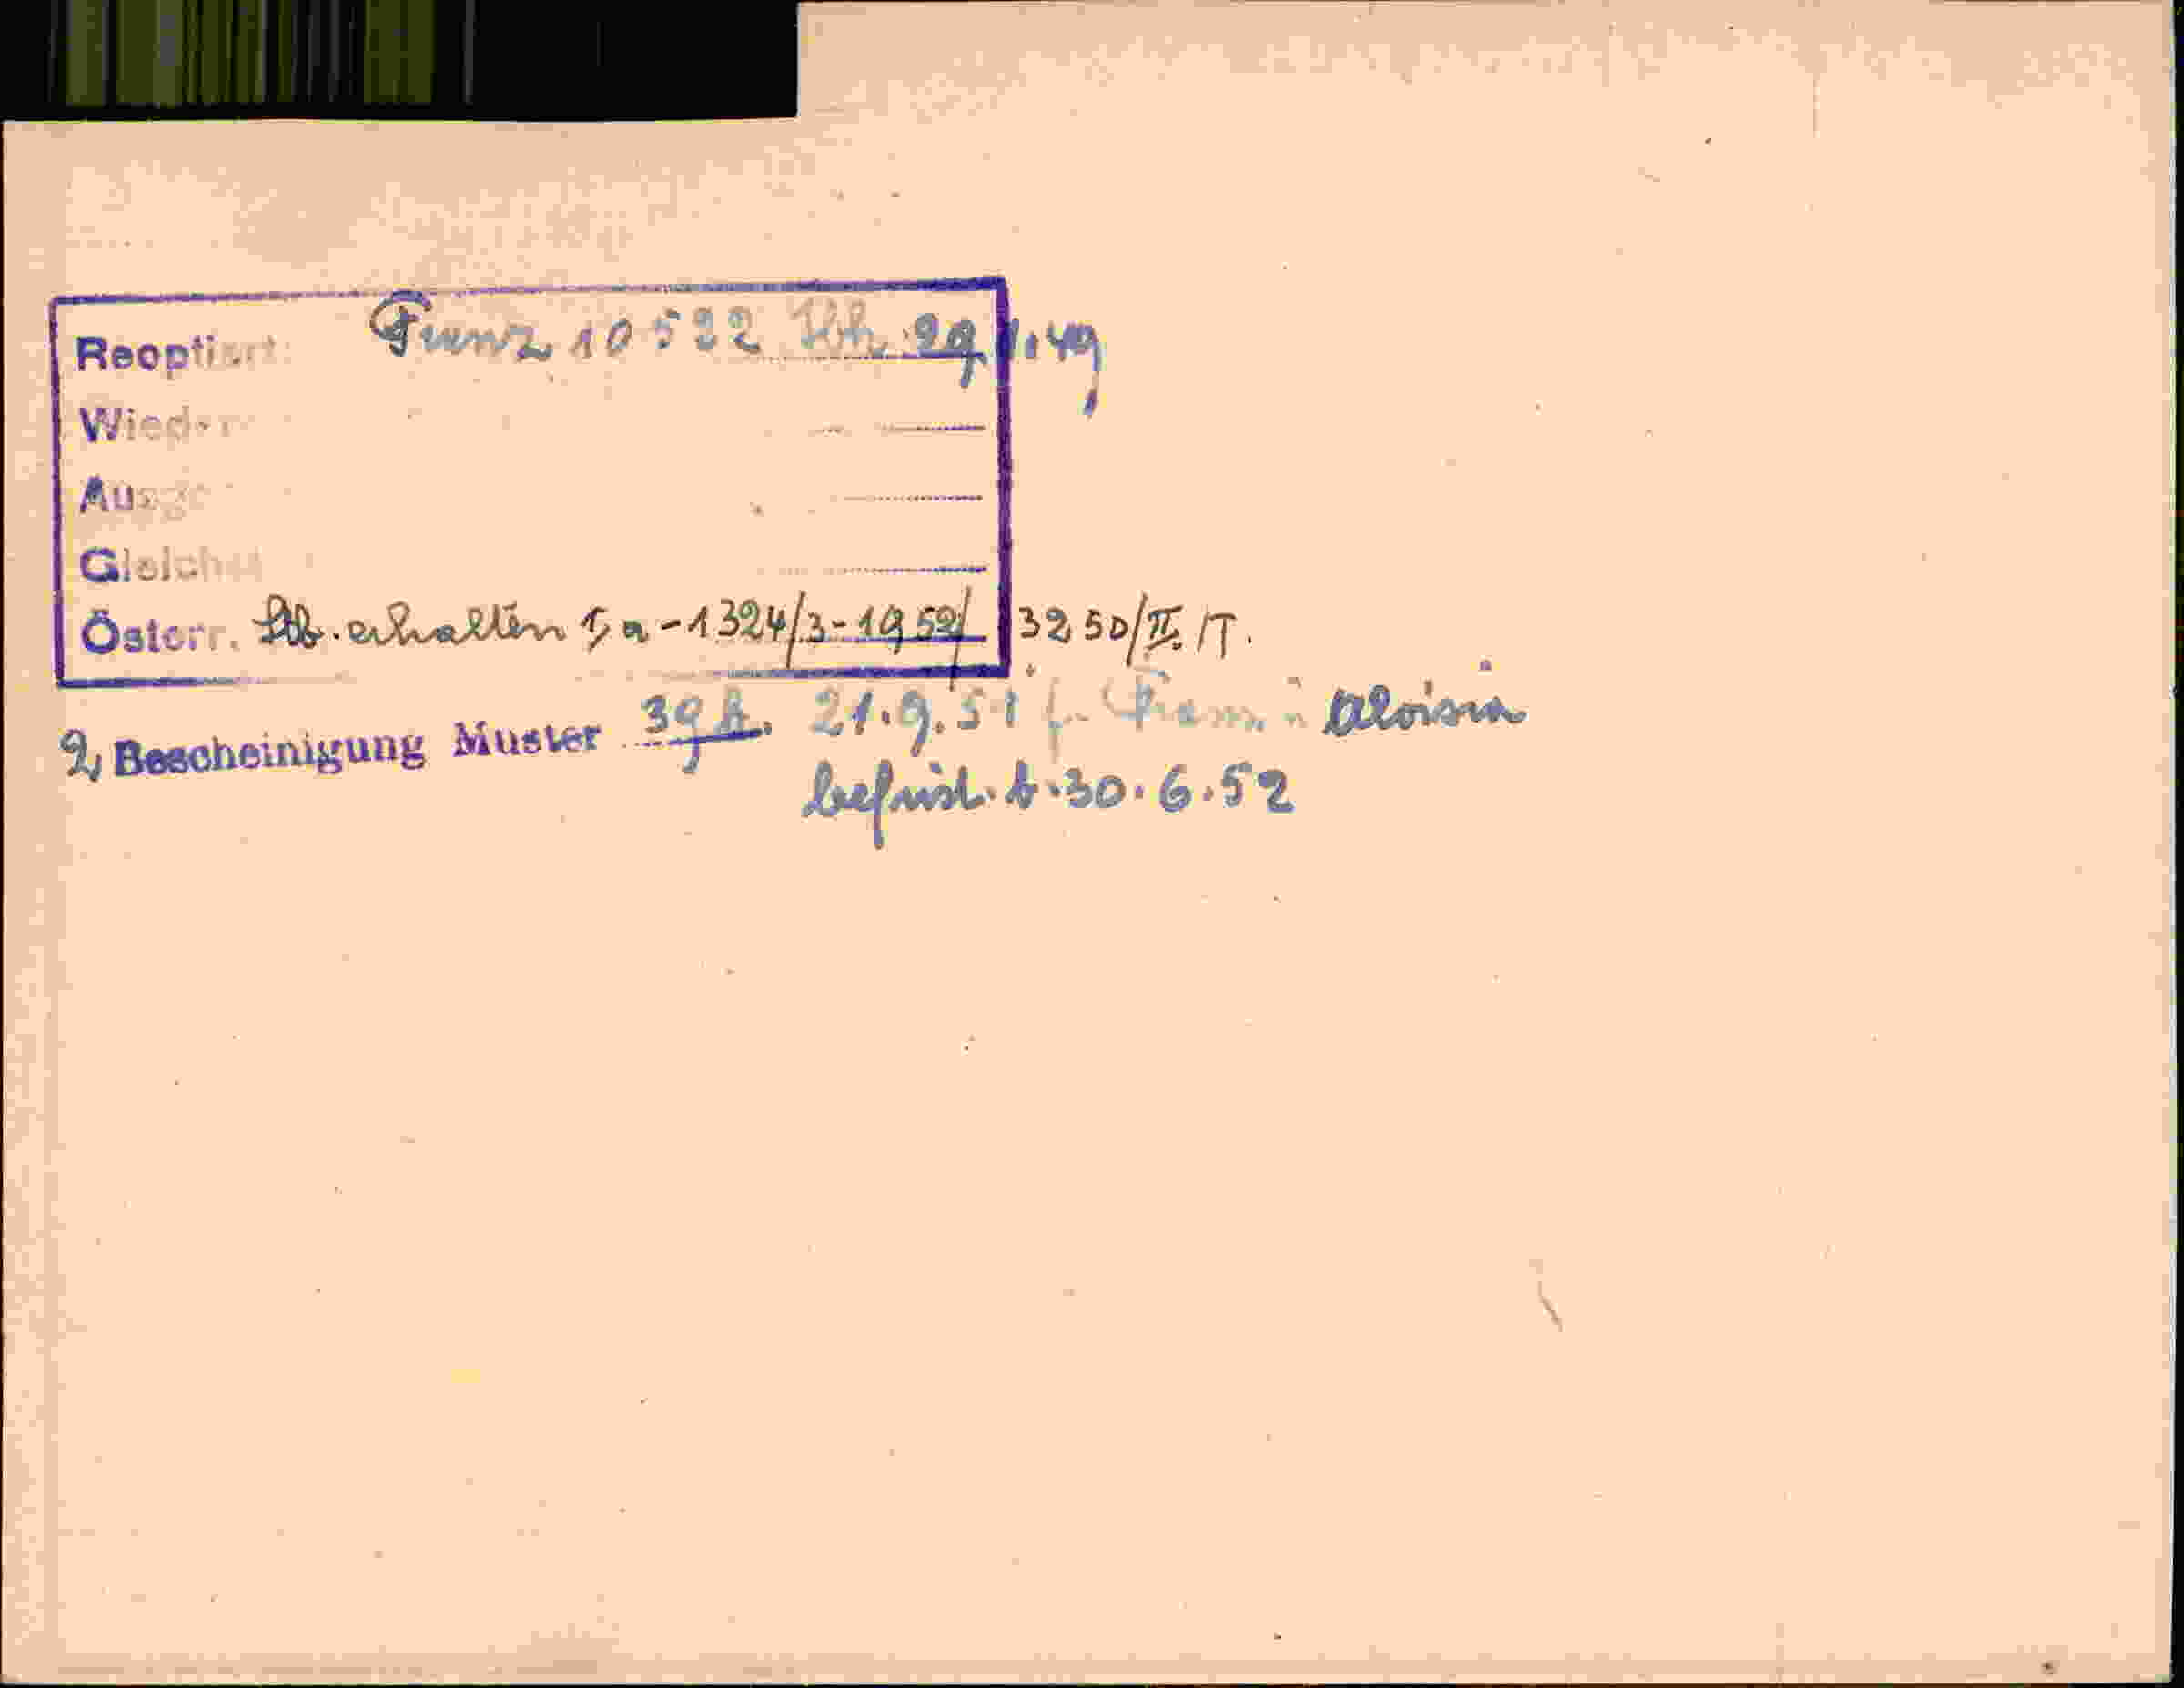 Reoptiert: Franz 10522 29.1.49
Wieder
Ausge
Gleich
Österr. Stb. erhalten I, a - 1324/3 - 1952/ 3250/II./T.
2, Bescheinigung Muster 39 A. 21.9.51 f. Aloisia
befrist. b. 30.6.52